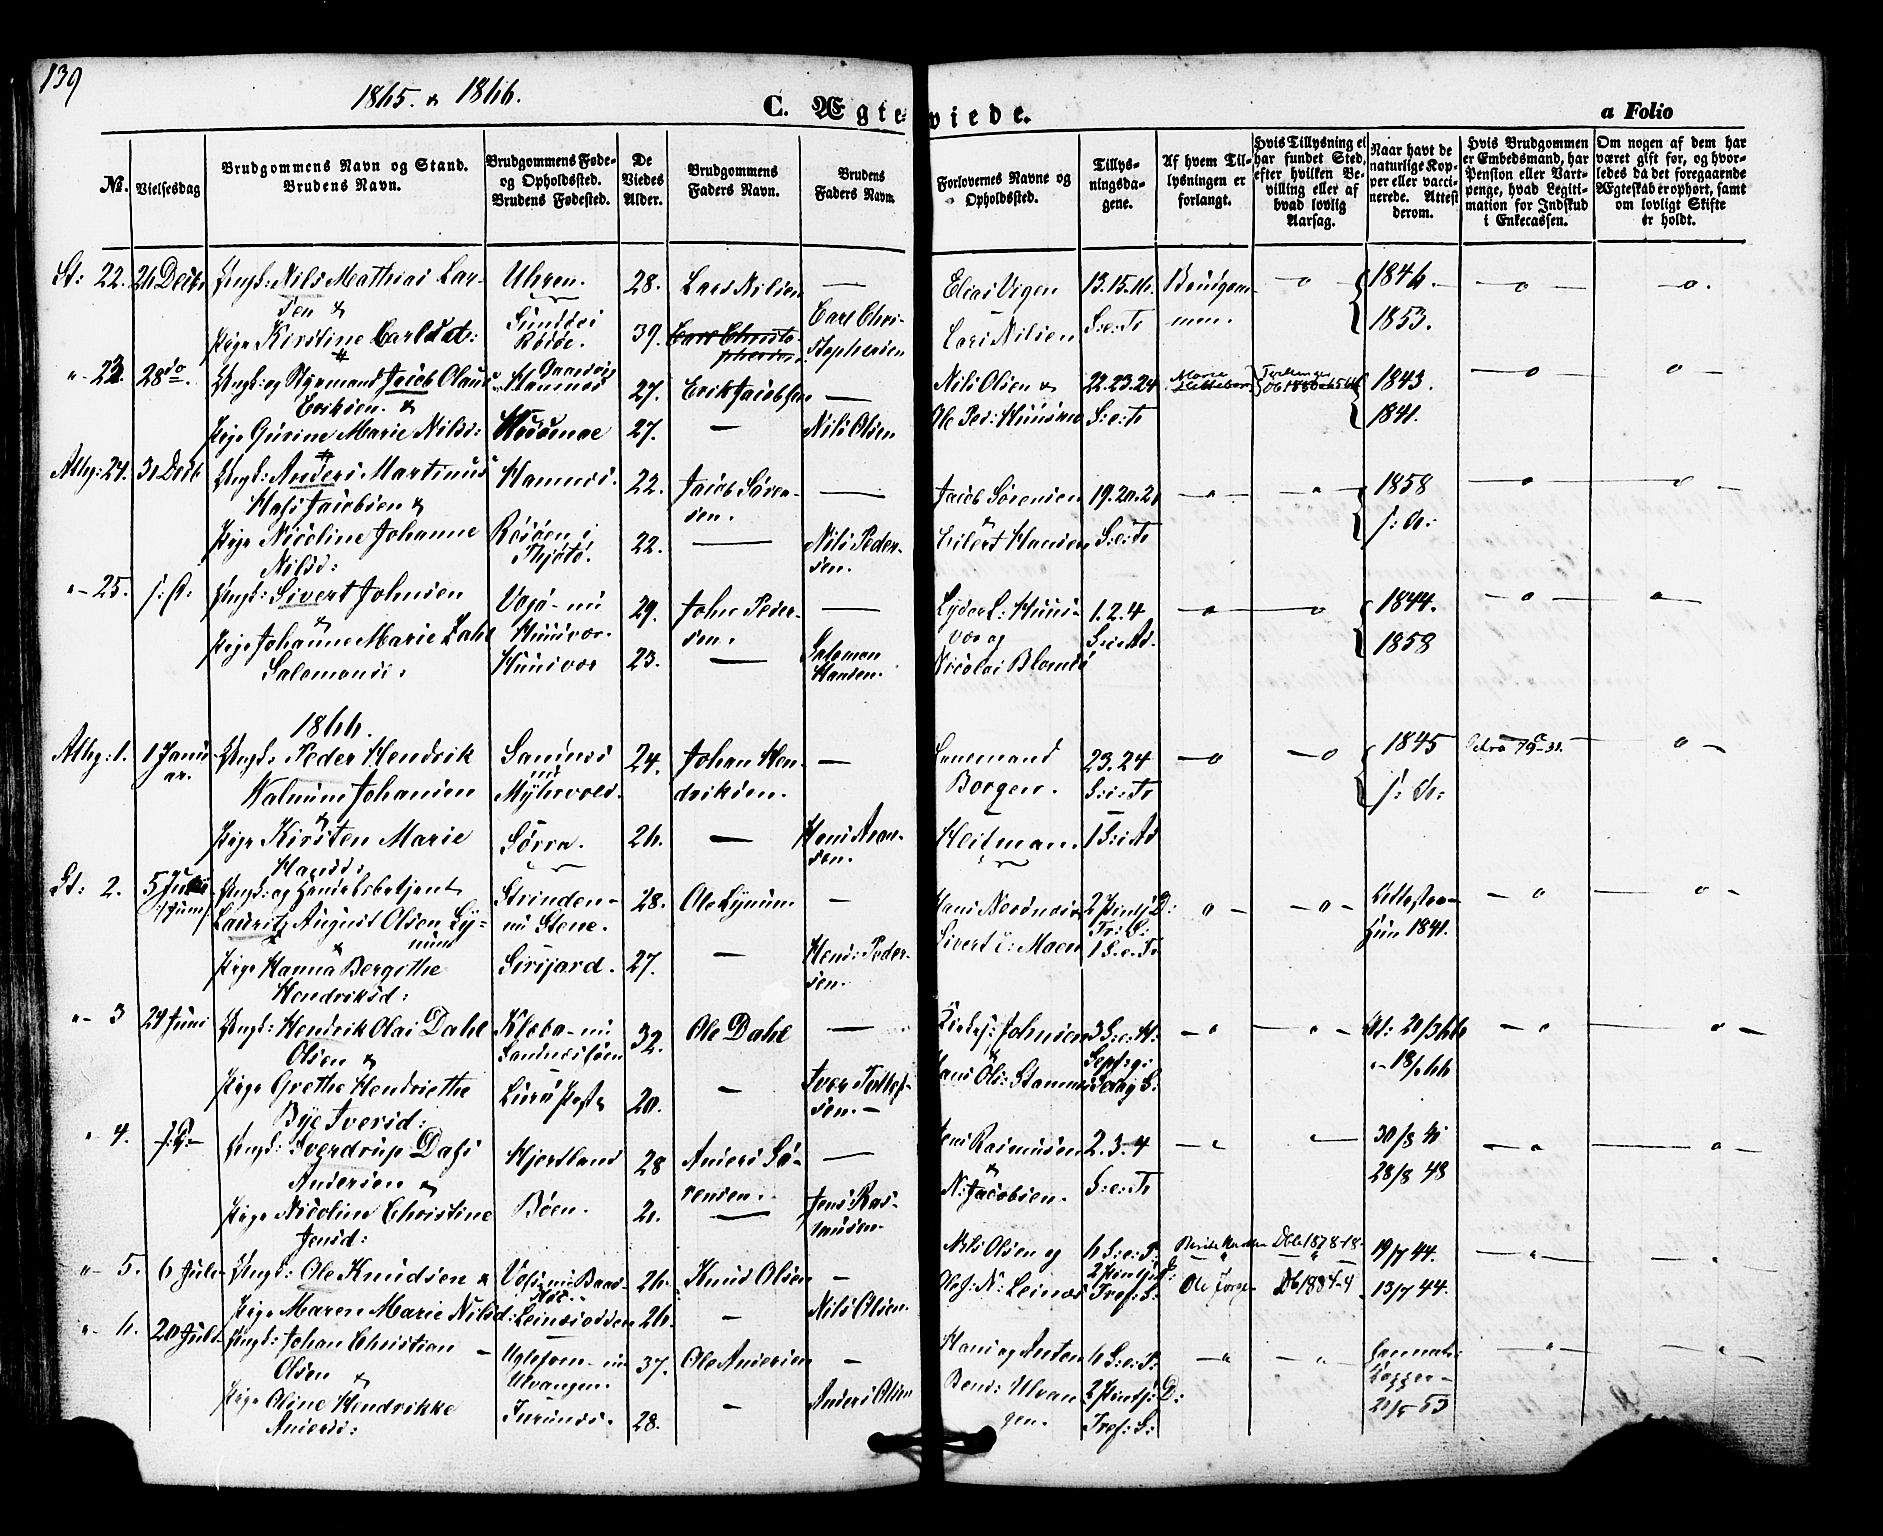 139
1865. & 1866.
C. Ægteviede.
a Folio
№.
Vielsesdag
Brudgommens Navn og Stand.
Brudens Navn.
Brudgommens Føde-
og Opholdssted.
Brudens Fødested.
De
Viedes
Alder.
Brudgommens
Faders Navn.
Brudens
Faders Navn.
Forlovernes Navne og
Opholdssted.
Tillys-
ningsda-
gene.
Af hvem Til-
lysningen er
forlangt.
Hvis Tillysning ei
har fundet Sted,
efter hvilken Be-
villing eller af
hvad lovlig
Aarsag.
Naar havt de
naturlige Kop-
per eller vacci-
nerede. Attest
derom.
Hvis Brudgommen
er Embedsmand, har
Pension eller Vart-
penge, hvad Legiti-
mation for Indskud
i Enkecassen.
Om nogen af dem har
været gift før, og hvor-
ledes da det foregaaende
Ægteskab er ophørt, samt
om lovligt Skifte
er holdt.
St: 22. 26 Decbr Ungk: Nils Mathias Lar-
sen &
Pige Kirstine Carlsdt:
Uhren.
Rösöe.
28.
39.
Lars Nilsen
Carl Christo-
phersen
Carl Chri-
stophersen
Elias Vigen
Lars Nilsen
13.15.16.
S:e:Tr
Brudgom-
men.
1846.
1853.
" 23. 28 do. Ungk: og Styrmand Jacob Olaus
Eriksen. &
Pige Gurine Marie Nilsd:
Hamnes
27.
27.
Erik Jacobsen
Nils Olsen
Nils Olsen &
Ole Ped: Huusmo
22.23.24
S:e:Tr
1843.
1841.
Alhg: 24. 31 Decb Ungk: Anders Martinus
Hass Jacobsen &
Pige Nicoline Johanne
Nilsd:
Hamnes.
Rösöen i
Thjötö.
22.
22.
Jacob Sören-
sen.
Nils Peder-
sen.
Jacob Sörensen
&
Eilert Hansen
19.20.21
S:e:Tr
1858
s: A:
" 25. s: D: Ungk: Sivert Johnsen
&
Pige Johanne Marie Zahl
Salomonsd:
Huusvær.
Huusvær
29.
23.
John Peder-
sen.
Salomon
Hansen.
Lyder L: Huus-
vær og
Nicolai Blomsö
1.2.4
S:e:Ad.
1844.
1858
1866.
Alhg: 1. 1 Janu-
ar.
Ungk: Peder Hendrik
Walnum Johansen
&
Pige Kirsten Marie
Hansd:
Sandnes
nu
Myhrvold.
Sörra.
24.
26.
Johan Hen-
driksen.
Hans Aron-
sen.
Lensmand
Borgen.
Heitman.
23.24
S:e:Tr
1 S:e:Ad
1845
s: A:
St: 2. 5 Juli
Ungk: og Handelsbetjent
Lauritz August Olsen Ly-
num
&
Pige Hanna Bergithe
Hendriksd:
Strinden-
nu Stene.
28.
27.
Ole Lynum
Hend: Peder-
sen.
Hans Nordnæs
Sivert C: Moen
2 Pintsd:
Tr: S:
1 S.e.Tr
1841.
" 3 24 Juni Ungk: Hendrik Olai Dahl
Olsen &
Pige Grethe Hendriethe
Bye Iversd:
Klæbo-nu
Sandnessjöen
Luröe Præstg
32.
20.
Ole Dahl
Iver Tollef-
sen.
Johnsen
&
Hans Ols: Stamnes
3 S:e:H:
At: 20/3 66
" 18/6 66
" 4. s: D: Ungk: Sverdrup Dass
Andersen &
Pige Nicoline Christine
Jensd:
Hjertland
Böen.
28
21.
Anders Sö-
rensen.
Jens Ras-
mussen.
Jens Rasmusen
&
N: Jacobsen.
2.3.4
S:e:Tr
30/8 41
28/8 48
" 5. 6 Juli Ungk: Ole Knudsen &
Pige Maren Marie Nilsd:
Leinesodden
26.
26.
Knud Olsen
Nils Olsen.
Nils Olsen og
Olaf: N: Leines
6 S:e:P:
2 Pintsd:
Tref: S:
19/7 44.
13/7 44.
" 6. 20 Juli Ungk: Johan Christian
Olsen &
Pige Oline Hendrikke
Andersd:
Ulvangen.
37.
28.
Ole Andersen
Anders Olsen
Hans og Anton
Bend: Ulvan-
gen.
6 S:e:P:
2 Pintsd:
Tref: S:
21/5 53